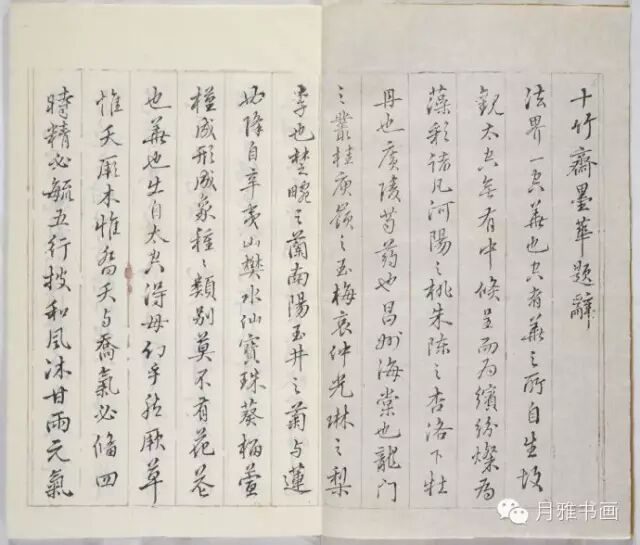 十竹齋墨華題辭
法界一空華也空者華之所自生故
觀太空無有中倏呈而為繽紛燦為
藻彩諸凡河陽之桃朱陳之杏洛下牡
丹也廣陵芍藥也昌州海棠也龍門
之叢桂庾嶺之玉梅哀仲光琳之梨
李也楚畹之蘭南陽玉井之菊与蓮
降自辛夷山礬水仙寶珠葵榴萱
槿成形成象種之類別莫不有花花
也華也生自太空得毋幻乎然厥草
惟夭厥木惟喬夭与喬氣必備四
時精必毓五行披和風沐甘雨元氣
月雅书画